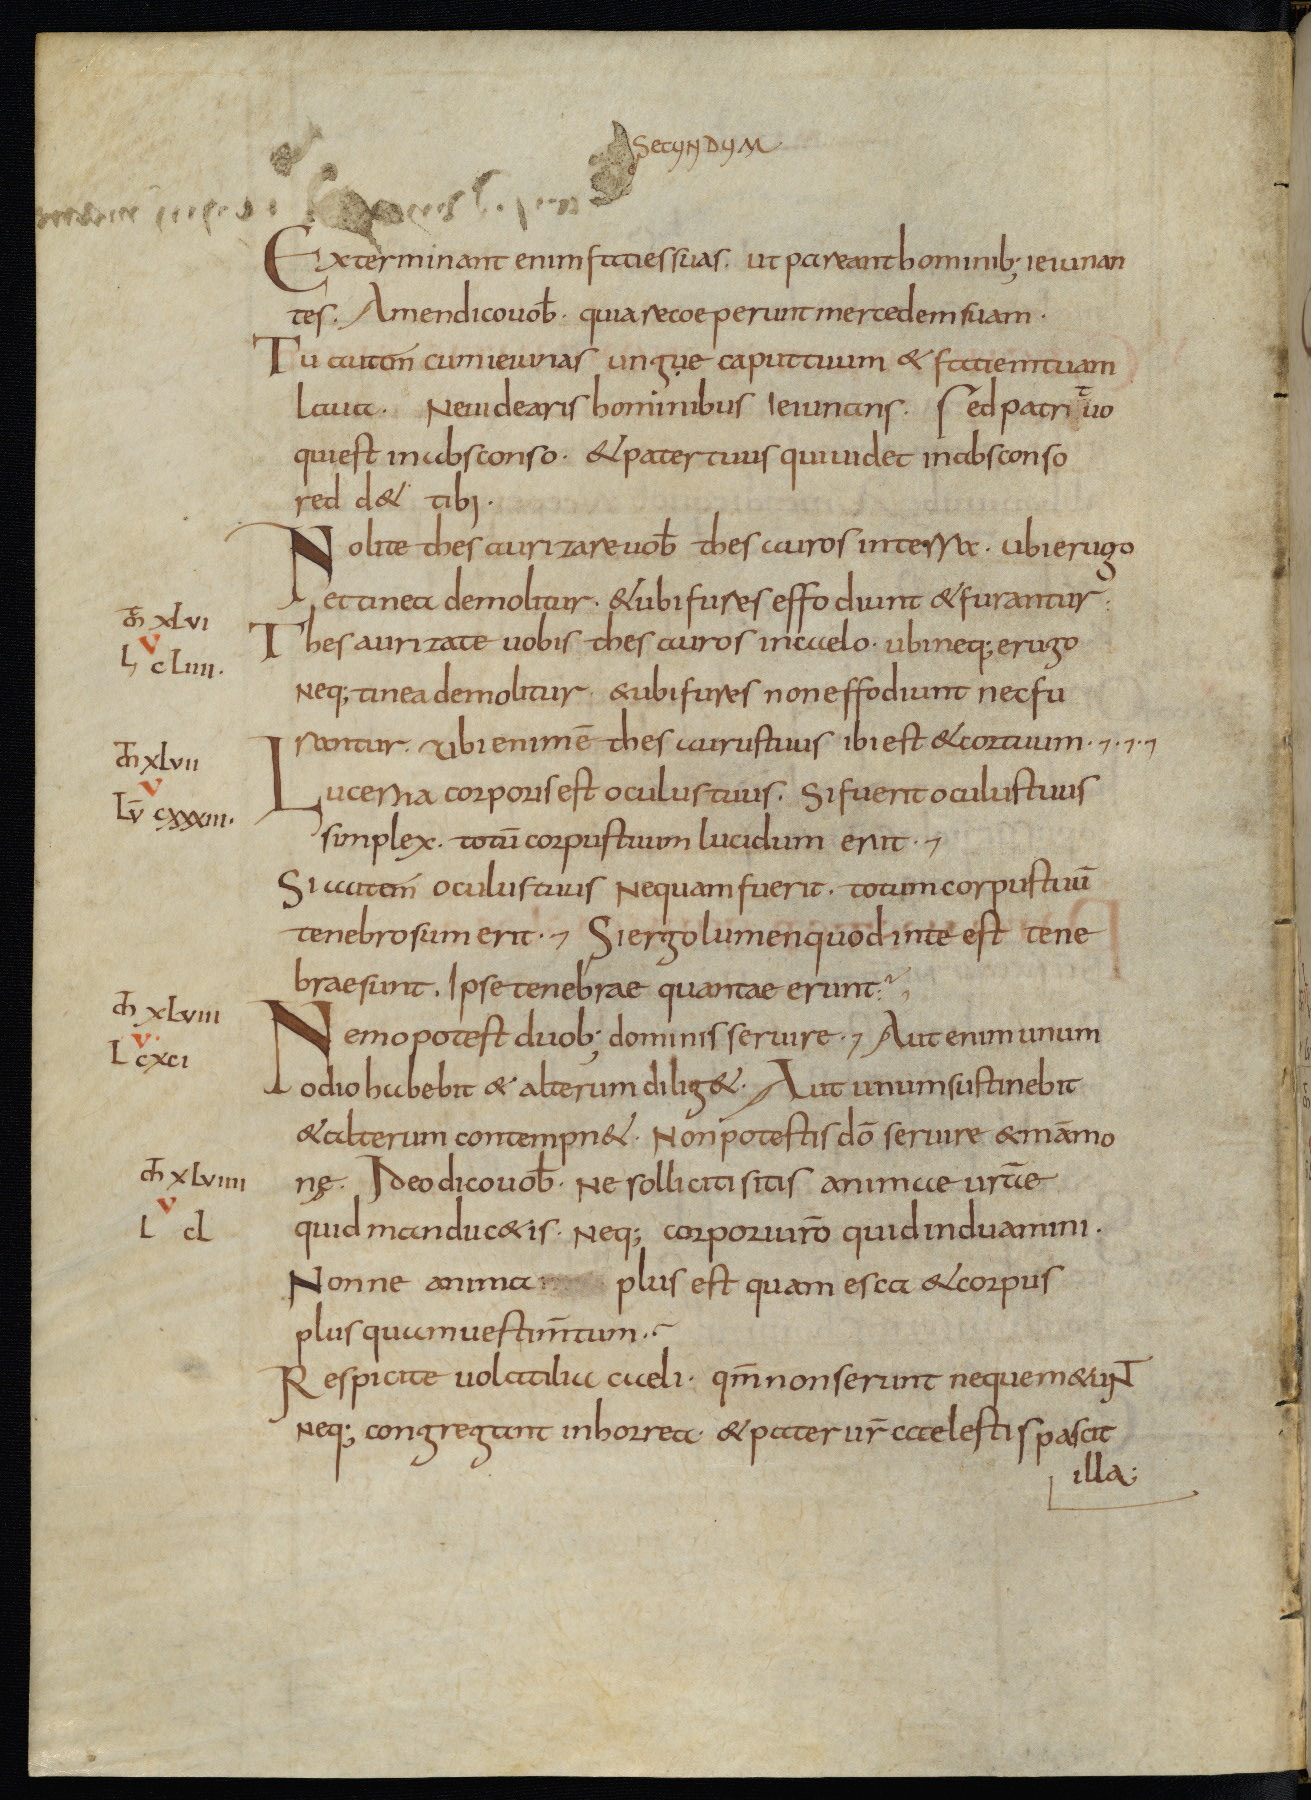 SECUNDUM
Exterminant enim facies suas. ut pareant hominib; ieiunan
tes. Amen dico uob̄. quia recoeperunt mercedem suam.
Tu autem̄ cum ieiunas ungue caput tuum & faciem tuam
laua. Ne uidearis hominibus Ieiunans. Sed patri tuo
qui est in absconso. & pater tuus qui uidet in absconso
red d& tibi.
Nolite thesaurizare uob̄ thesauros in terra. ubi erugo
et tinea demolitur. & ubi fures effodiunt & furantur.
m̄ xLvi
Thesaurizate uobis thesauros in caelo. ubi neq; erugo
v
L cLiiii.
Neq; tinea demolitur. & ubi fures non effodiunt nec fu
rantur. Ubi enim ē thesaurus tuus ibi est & cor tuum.
m̄ xLvii
v
Lucerna corporis est oculus tuus. Si fuerit oculus tuus
Lv̄ cxxxiii.
simplex. totū corpus tuum lucidum erit.
Si autem̄ oculus tuus Nequam fuerit. totum corpus tuū
tenebrosum erit. Si ergo lumen quod in te est tene
brae sunt. Ipse tenebrae quantae erunt.
m̄ xLviii
Nemo potest duob; dominis seruire. Aut enim unum
v
L cxci
odio habebit & alterum dilig&. Aut unum sustinebit
& alterum contempn&. Non potestis dō seruire & māmo
m̄ xLviiii
nę. Ideo dico uob̄. Ne solliciti sitis animae urāe
v
L cL
quid manduc&is. Neq; corpori uirō quid induamini.
Nonne anima plus est quam esca & corpus
plus quam uestim̄tum.
Respicite uolatilia caeli. qm̄ non serunt neque m&uNT
Neq; congregant in horrea. & pater ur̄ caelestis pascit
illa;